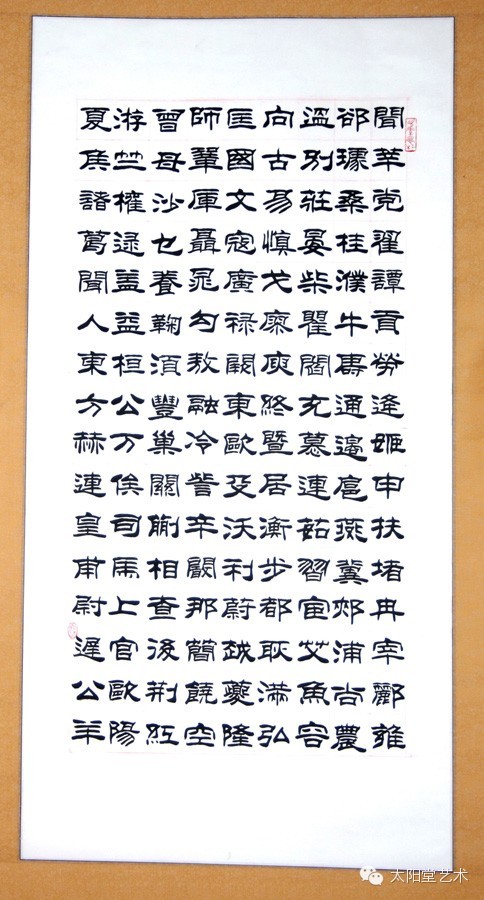 聞莘党翟譚貢勞逄姬申扶堵冉宰酈雍
郤璩桑桂濮牛壽通邊扈燕冀郟浦尚農
溫別莊晏柴瞿閻充慕連茹習宦艾魚容
向古易慎戈廖庾終暨居衡步都耿滿弘
匡國文寇廣祿闕東歐殳沃利蔚越夔隆
師鞏厙聶晁勾敖融冷訾辛闞那簡饒空
曾毋沙乜養鞠須豐巢關蒯相查後荊紅
游竺權逯蓋益桓公万俟司馬上官歐陽
夏侯諸葛聞人東方赫連皇甫尉遲公羊
太阳堂艺术